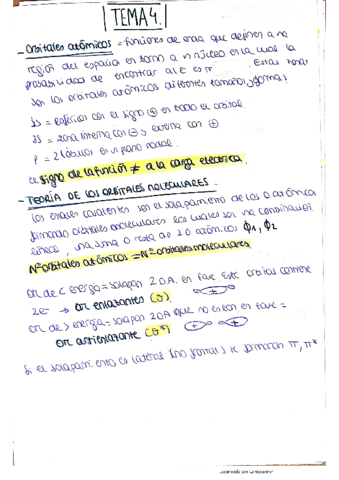 TEMA 4.
- Orbitales atómicos = funciones de onda que definen a na
región del espacio en torno a n núcleo en la cual la
probabilidad de encontrar al e es Estas
son los orbitales atómicos diferentes tamaños y formas
1s = esférico con el signo ⊕ en todo el orbital.
2s = zona interna con ⊖ y externa con ⊕
P = 2 lóbulos en n plano nodal.
el signo de la función ≠ a la carga eléctrica.
- TEORÍA DE LOS ORBITALES MOLECULARES.
los enlaces covalentes son el solapamiento de los O atómicos
formando orbitales moleculares los cuales son na combinación
lineal, na suma o resta de 2 O atómicos ϕ1, ϕ2
Nº orbitales atómicos = Nº orbitales moleculares
OM de < energía = solapan 2 O.A. en fase este orbital contiene
2e- → OM enlazantes (σ).
OM de > energía = solapan 2 O.A que no están en fase =
OM antienlazante (σ*)
Si el solapamiento es lateral (no frontal) se forman π, π*